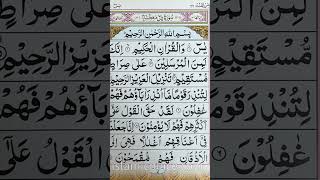 بِسْمِ اللهِ الرَّحْمٰنِ الرَّحِيْمِ
يٰسٓ ۚ وَالْقُرْاٰنِ الْحَكِيْمِ ۙ اِنَّكَ
لَمِنَ الْمُرْسَلِيْنَ ۙ عَلٰى صِرَاطٍ
مُّسْتَقِيْمٍ ؕ تَنْزِيْلَ الْعَزِيْزِ الرَّحِيْمِ ۙ
لِتُنْذِرَ قَوْمًا مَّاۤ اُنْذِرَ اٰبَآؤُهُمْ فَهُمْ
غٰفِلُوْنَ ۚ لَقَدْ حَقَّ الْقَوْلُ عَلٰۤى
اَكْثَرِهِمْ فَهُمْ لَا يُؤْمِنُوْنَ ۚ اِنَّا جَعَلْنَا
فِيْۤ اَعْنَاقِهِمْ اَغْلٰلًا فَهِيَ اِلَى
الْاَذْقَانِ فَهُمْ مُّقْمَحُوْنَ